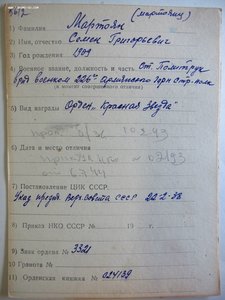 (мартоянц)
1) Фамилия Мартоян
2) Имя, отчество Сомек Григорьевич
3) Год рождения 1909
4) Военное звание, должность и часть Ст. Политрук
226го армянского горн стр. полк
(в момент совершения отличия)
5) Вид награды Орден „Красная Звезда"
6) Дата и место отличия
от 6.7.44
7) Постановление ЦИК СССР
Указ през. Верх. Совета СССР 22-2-38
8) Приказ НКО СССР № 19 г.
9) Знак ордена № 3321
10) Грамота №
11) Орденская книжка № 024139